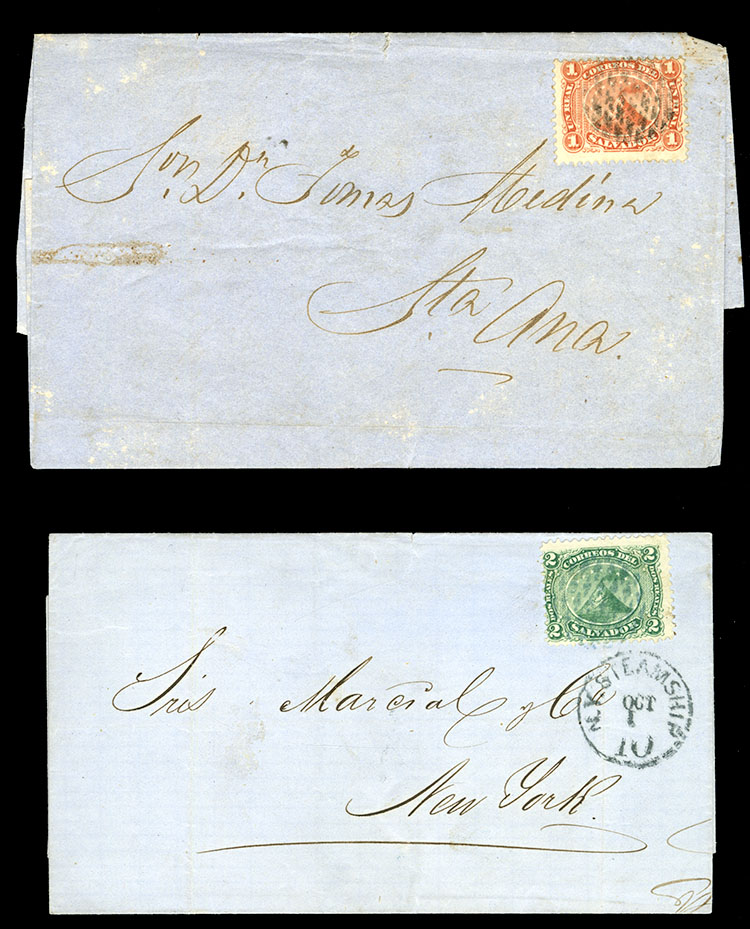 1 CORREOS DEL 1
UN REAL UN REAL
1 SALVADOR 1
Sor. Dn. Tomas Medina
Sta. Ana.
2 CORREOS DEL 2
DOS REALES DOS REALES
2 SALVADOR 2
N.Y. STEAMSHIP
OCT
1
10
Sres Marcial y Ca
New York.